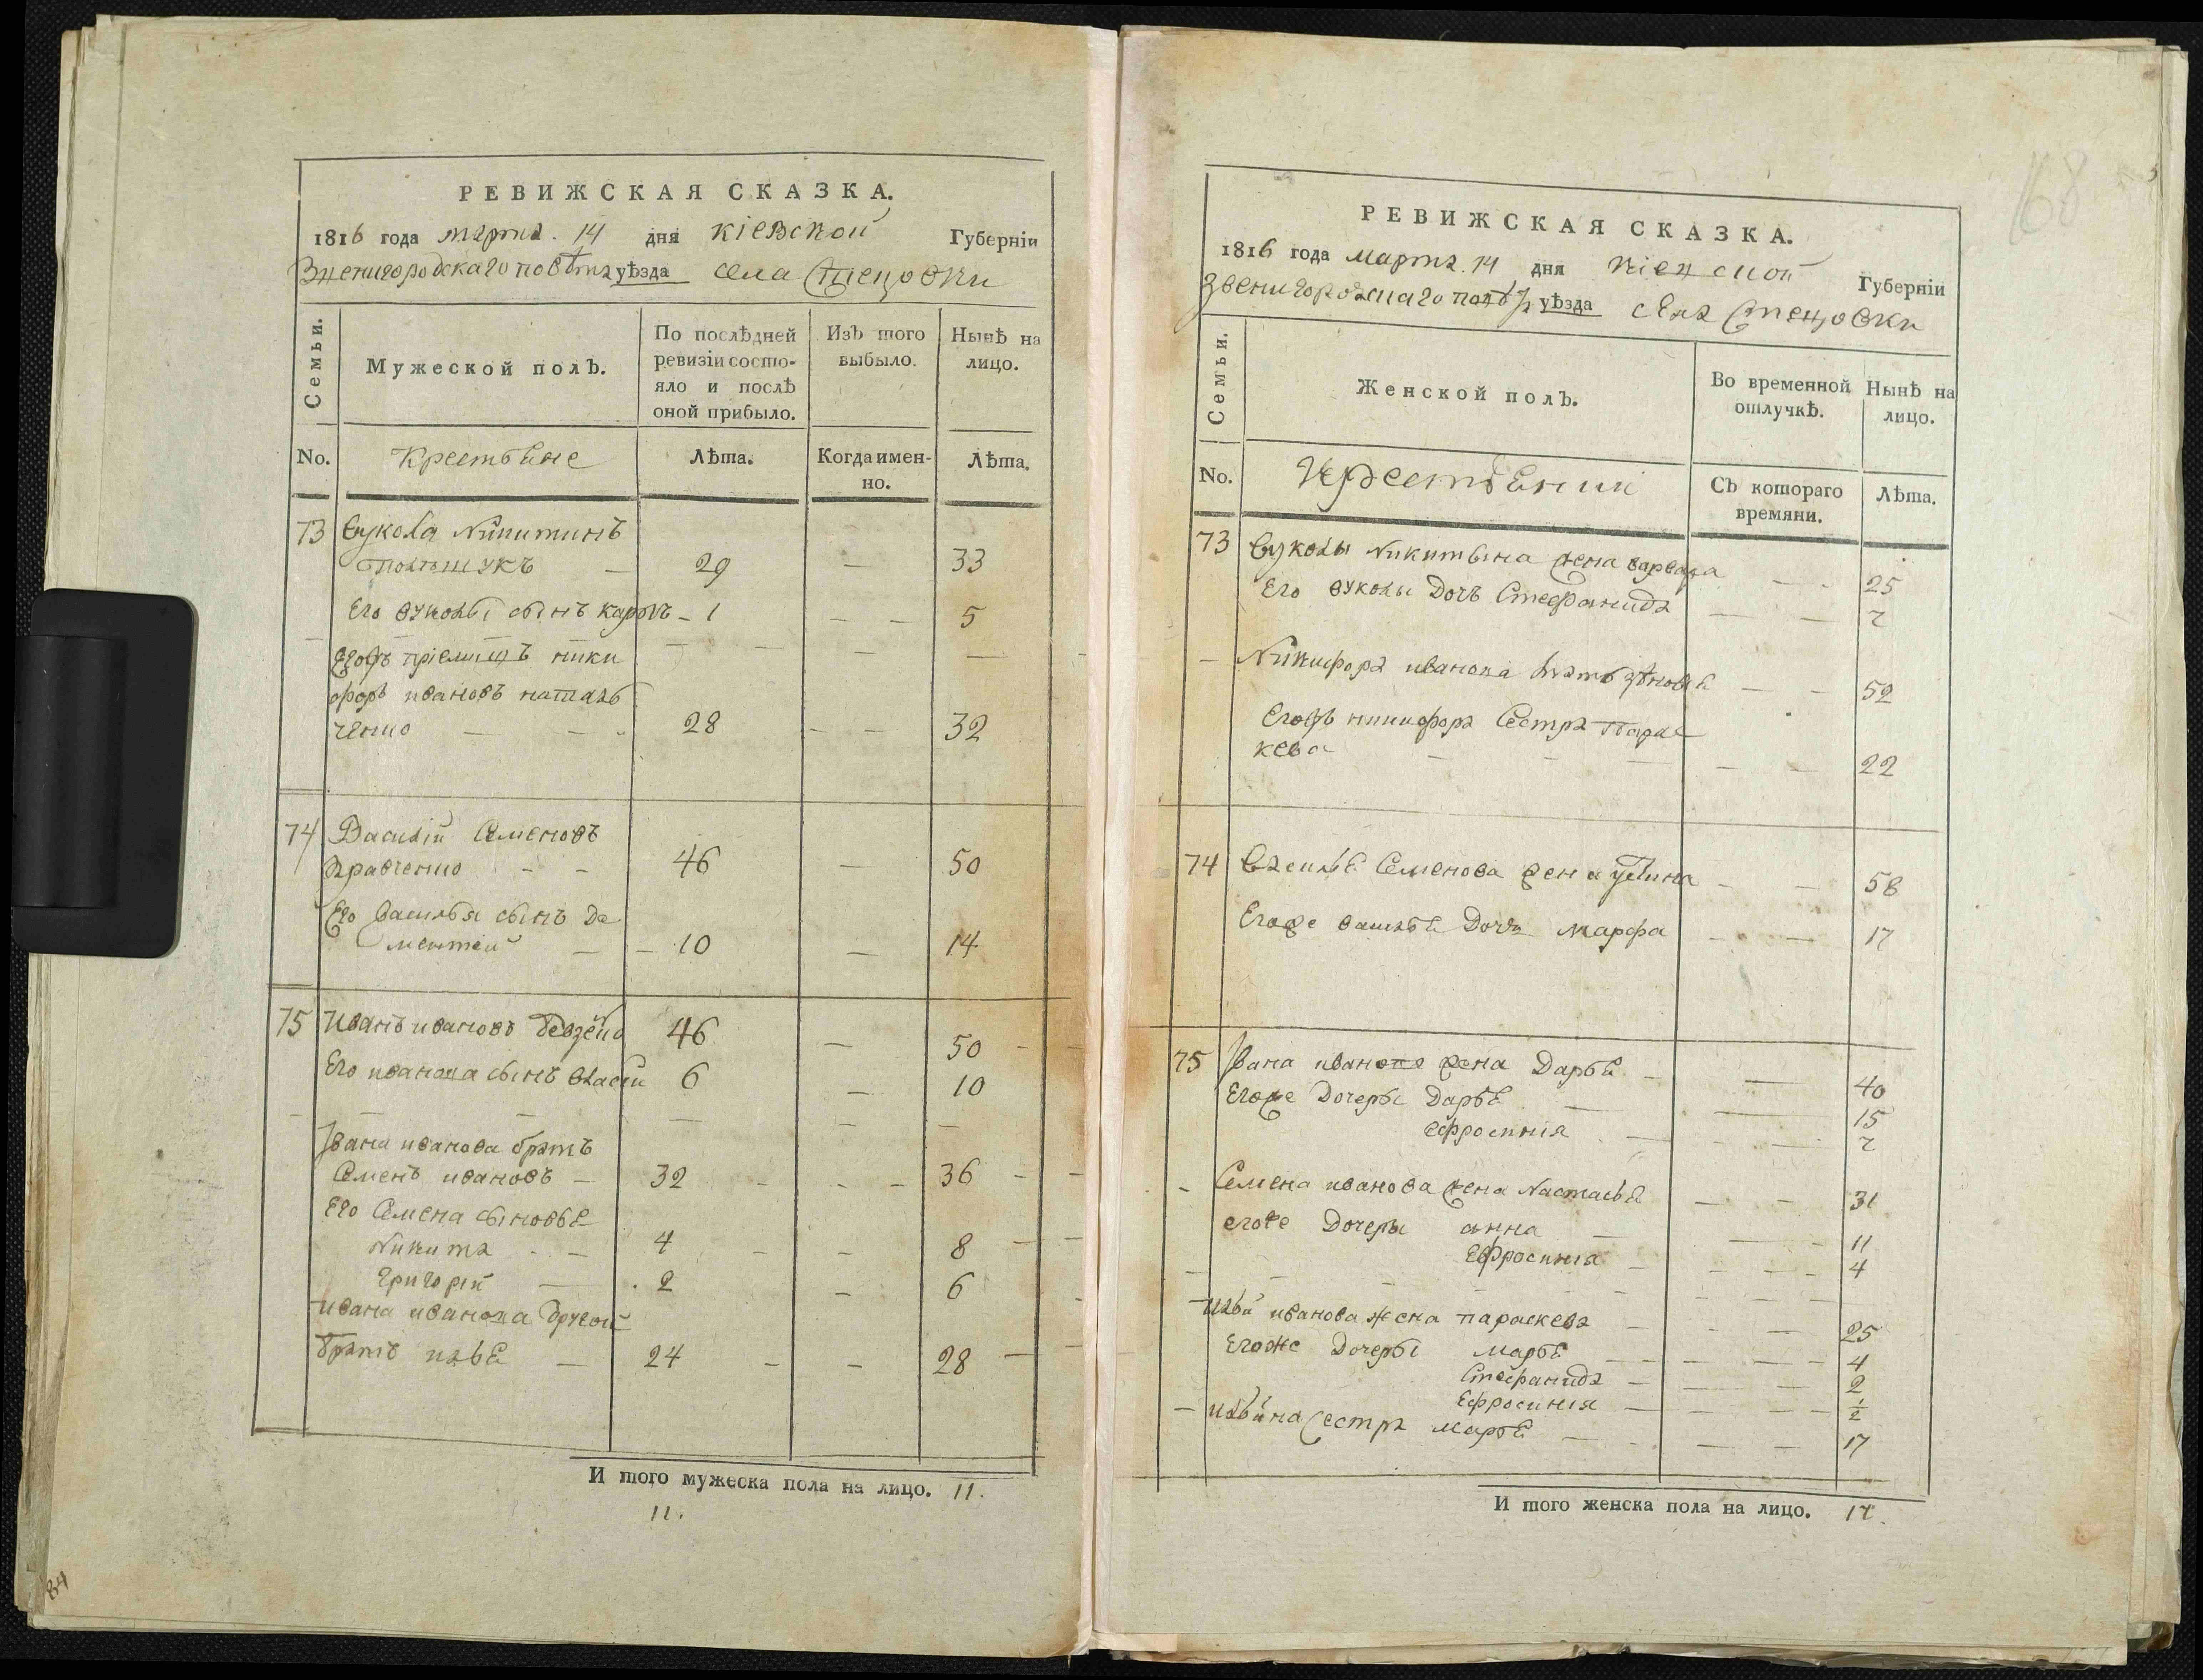 РЕВИЖСКАЯ СКАЗКА.
1816 года марта. 14 дня Кіевской Губерніи
Звенигородскаго повѣта уѣзда села Стецовки
Семьи.
Мужеской полъ.
По послѣдней ревизіи состо-
яло и послѣ
оной прибыло.
Изъ того
выбыло.
Нынѣ на
лицо.
No.
Крестьяне
Лѣта.
Когда имен-
но.
Лѣта.
73 Вукола Никитинъ
29 — 33
Его вуколы сынъ карпъ - 1 — — 5
Егожъ пріемищъ ники
форъ ивановъ
ченко — — 28 — — 32
74 Василій Семеновъ
Кравченко - - 46 — 50
Его Василья сынъ Де
ментей — — 10 — 14
75 Иванъ ивановъ 46 — 50
Его иванова сынъ 6 — 10
Ивана иванова братъ
Семенъ ивановъ — 32 - - - 36
Его Семена сыновья
Никита - - 4 - - 8
Григорій — 2 - 6
ивана иванова другой
братъ илья — 24 - - 28
И того мужеска пола на лицо. 11.
11.
84
168
РЕВИЖСКАЯ СКАЗКА.
1816 года марта. 14 дня Кіевской Губерніи
Звенигородскаго уѣзда села Стецовки
Семьи.
Женской полъ.
Во временной
отлучкѣ.
Нынѣ на
лицо.
No.
Крестьянки
Съ котораго
времяни.
Лѣта.
73 Вуколы Никитына жена варвара — - 25
Его вуколы Дочь Стефанида — — 7
— Никифора иванова мать — - 52
Егожъ никифора Сестра Парас
кева — — — — — 22
74 Василья Семенова жена устина - — 58
Егоже василья Дочь марфа - — 17
75 Ивана иванова жена Дарья — — 40
Егоже Дочеры Дарья — — 15
Ефросиния — — - 7
- Семена иванова жена Настасья — - 31
егоже Дочеры анна — — - 11
Ефросиния — - — - 4
ильи иванова жена параскева — - — 25
Егоже Дочеры марья — — — — 4
Стефанида — — — 2
Ефросиния — — — - 1/2
— ильина сестра марья — - — — 17
И того женска пола на лицо. 17.